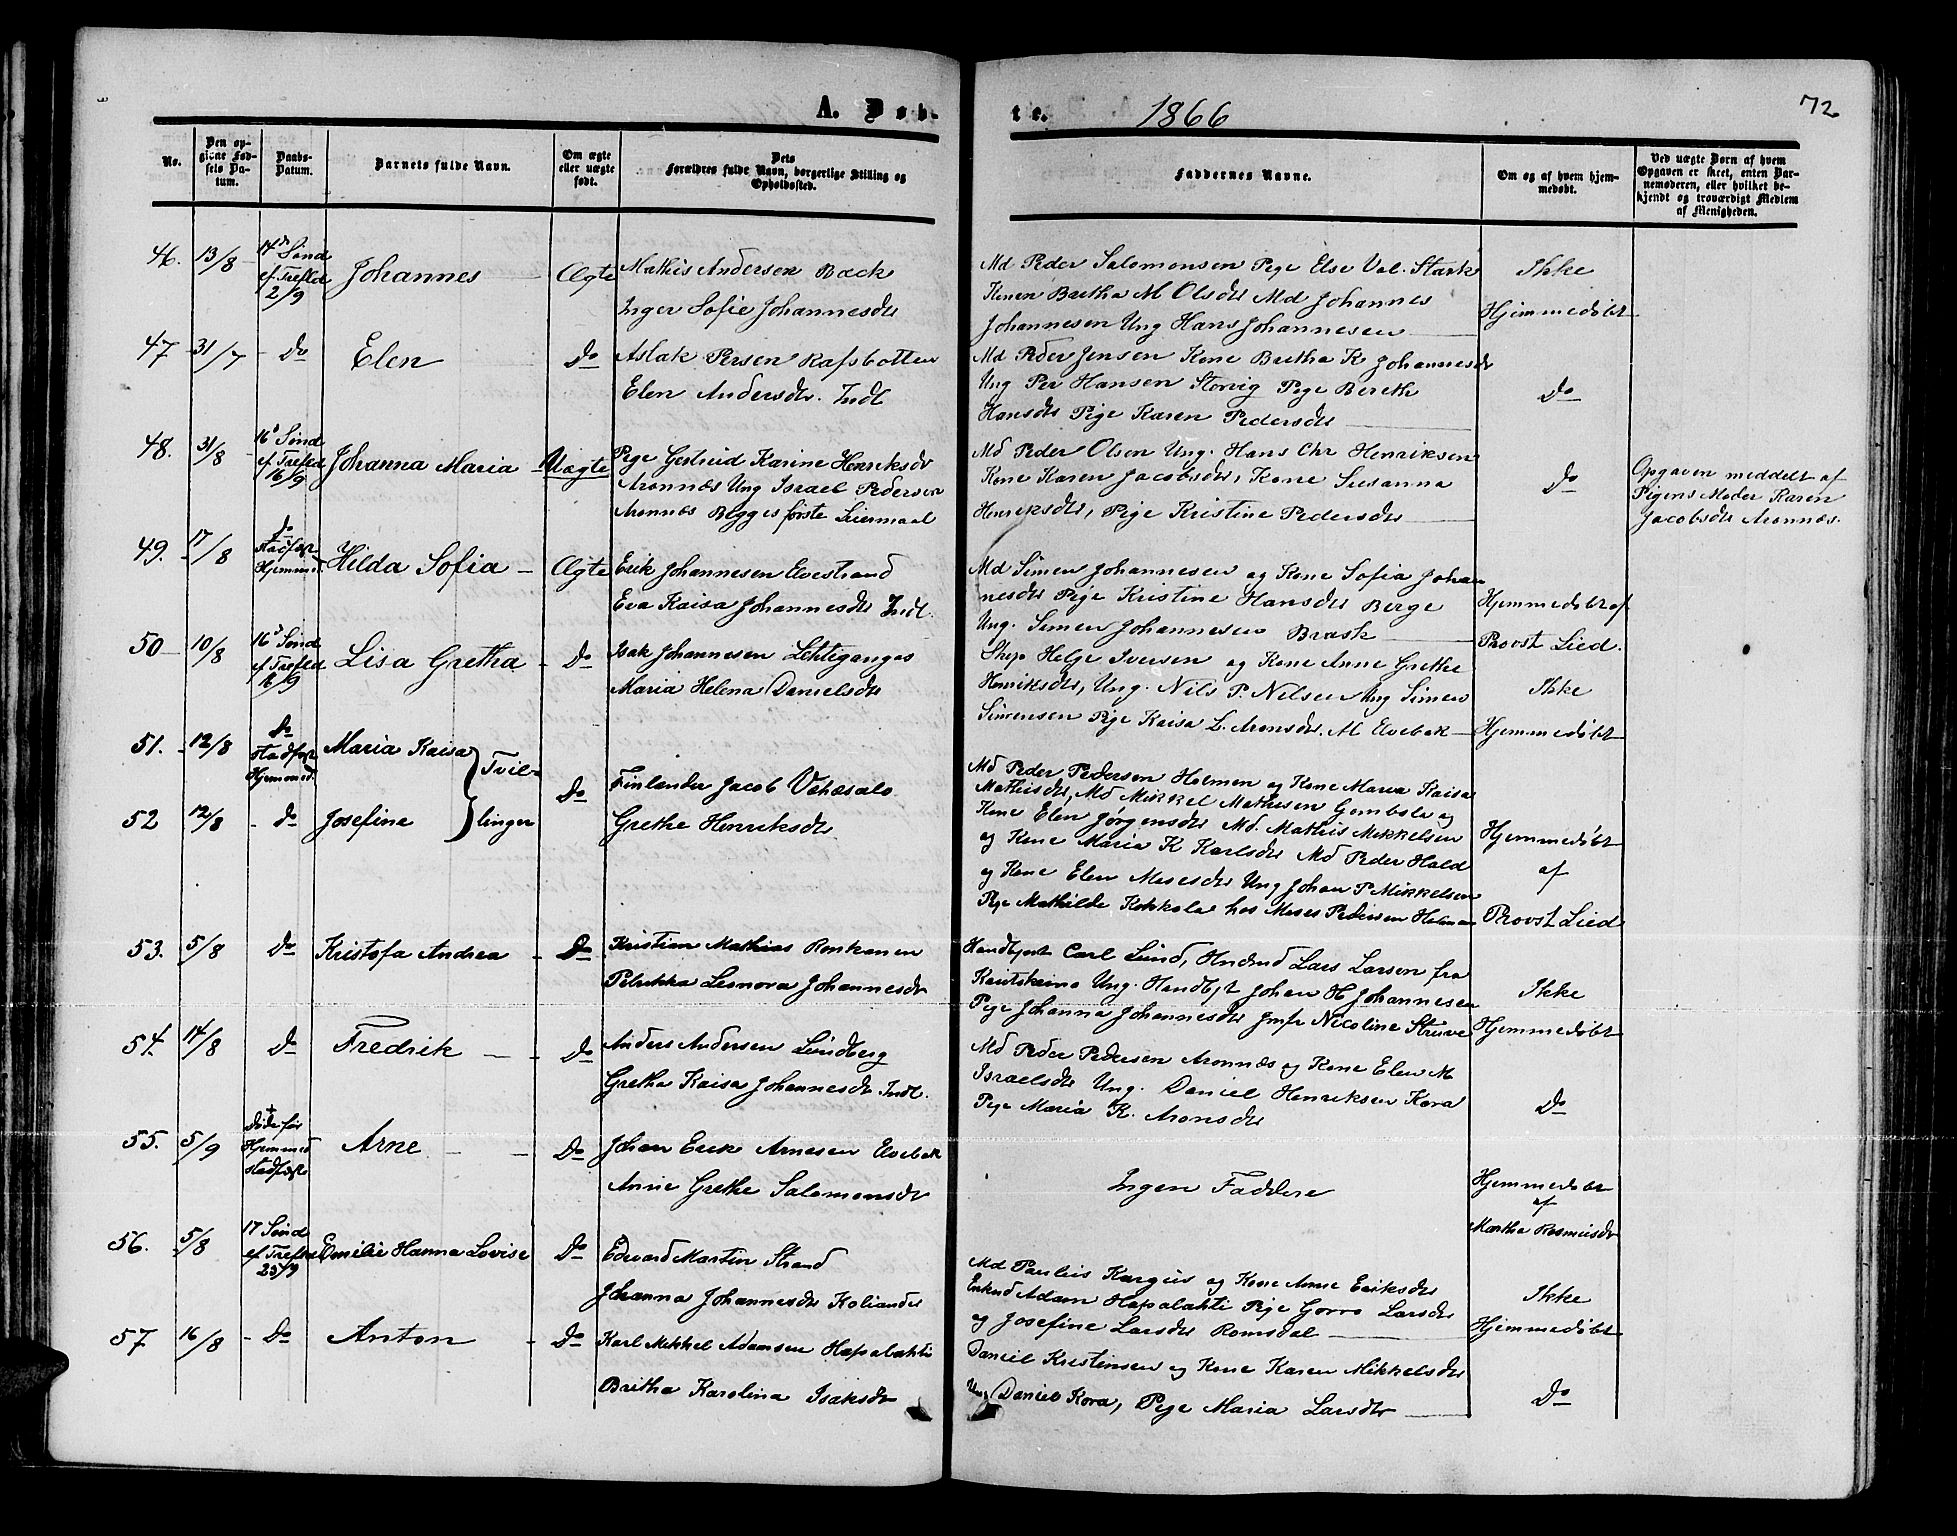 A. Døb-
te.
1866
72
No.
Den op-
givne Fød-
sels Da-
tum.
Daabs-
Datum.
Barnets fulde Navn.
Om ægte
eller uægte
født.
Dets
Forældres fulde Navn, borgerlige Stilling og
Opholdssted.
Faddernes Navne.
Om og af hvem hjem-
medøbt.
Ved uægte Børn af hvem
Opgaven er skeet, enten Bar-
nemoderen, eller hvilket be-
kjendt og troværdigt Medlem
af Menigheden.
46. 13/8
14d Sønd
ef. Trefld
2/9
Johannes
Ægte
Mathis Andersen Back
Inger Sofie Johannesdtr
Md Peder Salomonsen Pige Else Val. Stark
Konen Bretha M Olsdtr Md Johannes
Johannesen Ung Hans Johannesen
Ikke
Hjemmedøbt
47 31/7 - Do
Elen
Do
Aslak Persen Rafsbotten
Elen Andersdtr. Indl
Md Peder Jensen Kone Bretha K Johannesdtr
Ung Per Hansen Storvig Pige Berethe
Hansdtr Pige Karen Pedersdtr
Do
48. 31/8
16d Sønd
ef. Trefld
16/9
Johanna Maria - Uægte
Pige Gertrud Karine Henriksdtr
Aronnæs Ung Israel Pedersen
Aronnæs Begges første Leiermaal
Md Peder Olsen Ung. Hans Chr Henriksen
Kone Karen Jacobsdtr, Kone Susanna
Henriksdtr, Pige Kristine Pedersdtr
Do
Opgaven meddelt af
Pigens Moder Karen
Jacobsdtr Aronnæs.
49. 17/8
Do
stadfæst
Hjemmed.
Hilda Sofia - Ægte
Erik Johannesen Elvestrand
Eva Kaisa Johannesdtr Indl.
Md Simen Johannesen og Kone Sofia Johan-
nesdtr Pige Kristine Hansdtr Berge
Ung. Simen Johannesen Brask
Hjemmedøbt af
Provst Lied.
50 10/8
16d Sønd
ef Trefld
16/9
Lisa Gretha - Do
Isak Johannesen Lehtigangas
Maria Helena Danielsdtr
Skip Helge Iversen og Kone Anne Grethe
Henriksdtr, Ung. Nils P. Nilsen Ung Simen
Simensen Pige Kaisa L. Aronsdtr. Al Elvebak
Ikke
Hjemmedøbt
51. 12/8
Do
stadfæst
Hjemmed.
Maria Kaisa } Tvil-
52 12/8 - Do Josefine } linger
Do
Finlænder Jacob Vähäsalo
Grethe Henriksdtr
Md Peder Pedersen Holmen og Kone Maria Kaisa
Mathisdtr, Md Mikkel Mathisen Gombola og
Kone Elen Jørgensdtr Md. Mathis Mikkelsen
og Kone Maria K Karlsdtr Md Peder Hald
og Kone Elen Mosesdtr Ung Johan P Mikkelsen
Pige Mathilde Kokkola hos Moses Pedersen Holmen
Hjemmedøbt
af
Provst Lied
53. 5/8 Do Kristofa Andrea - Do
Kristian Mathias Ronkanen
Petrikka Leonora Johannesdtr
Handbetjent Carl Lund, Carl Lars Larsen fra
Kautokeino Ung. Handbjt Johan H Johannesen
Pige Johanna Johannesdtr Jmfr Nicoline Struve
Ikke
Hjemmedøbt
54. 14/8 Do Fredrik - - Do
Anders Andersen Lundberg
Gretha Kaisa Johannesdtr Indl.
Md Peder Pedersen Aronnæs og Kone Elen M
Israelsdtr Ung. Daniel Henriksen Kora
Pige Maria K. Aronsdtr
Do
55. 5/9
+
døde før
Hjemmed
stadfæst
Arne - - Do
Johan Erik Arnesen Elvebak
Anne Grethe Salomonsdtr
Ingen Faddere
Hjemmedøbt
af
Martha Rasmusdtr
56. 5/8
17 Sønd
ef Trefld
23/9
Emilie Hanna Lovise Do
Edvard Martin Strand
Johanna Johannesdtr Koliander
Md Paulus Kurgus og Kone Anne Eriksdtr
Enkmd Adam Hapalahti Pige Gorro Larsdtr
og Josefine Larsdtr Romsdal
Ikke
Hjemmedøbt
57 16/8 - Do Anton - Do
Karl Mikkel Adamsen Hapalahti
Britha Karolina Isaksdtr
Daniel Kristensen og Kone Karen Mikkelsdtr
Ung Daniel Kora, Pige Maria Larsdtr
Do